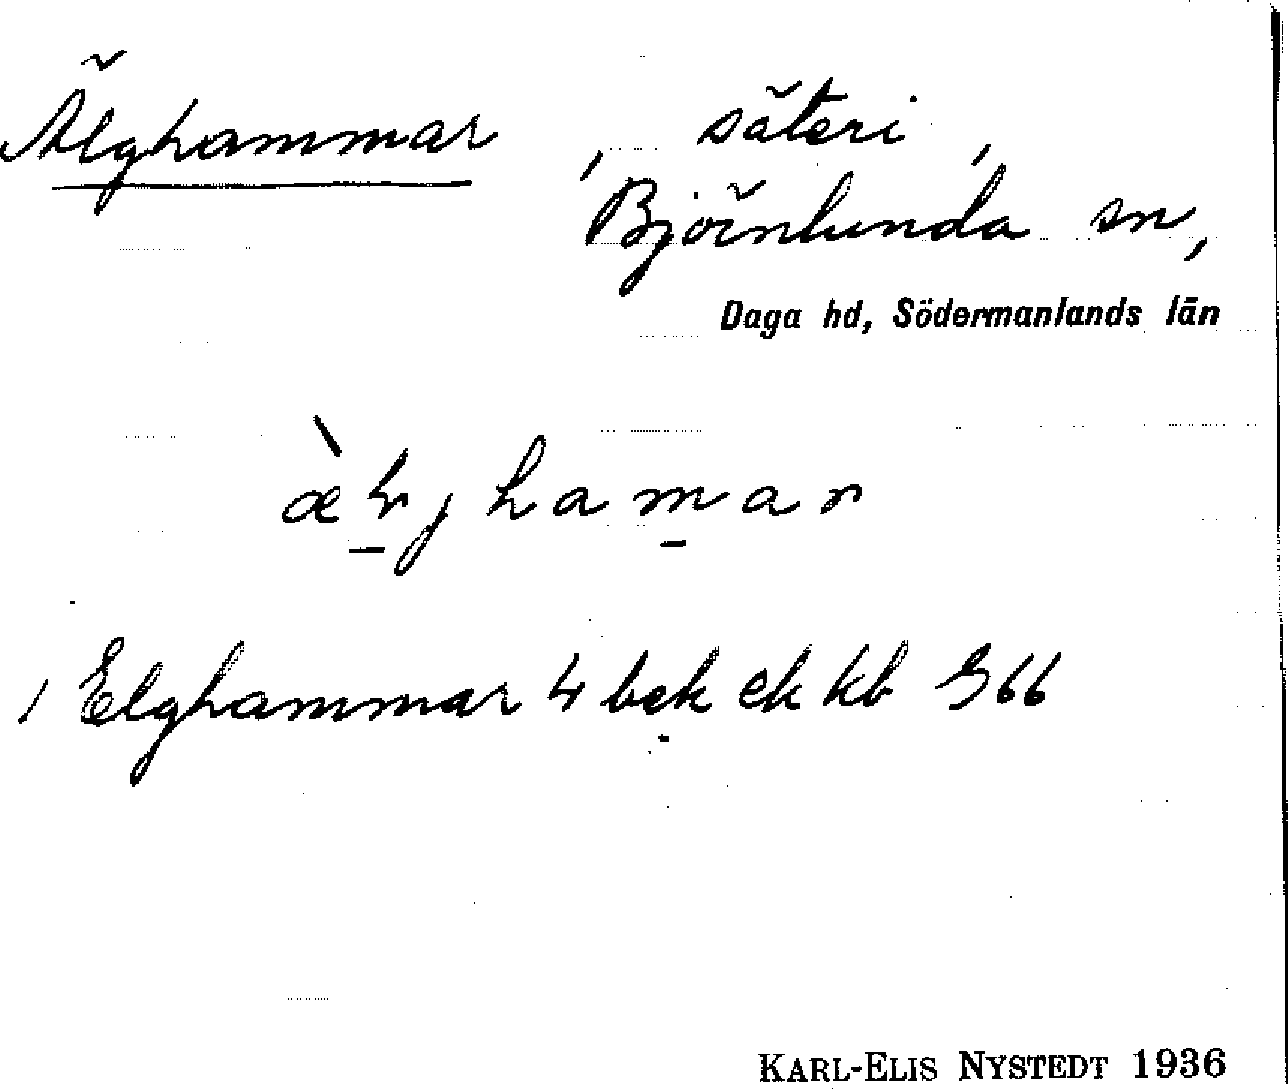 Älghammar, säteri,
Björnlunda sn,
Daga hd, Södermanlands län
Elghammar 4 bek ek kb G66
KARL-ELIS NYSTEDT 1936